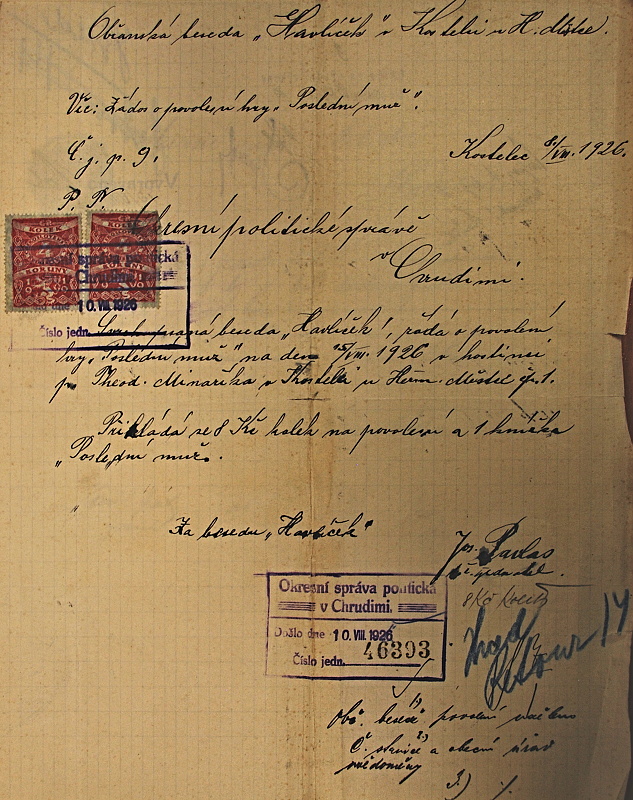 Občanská beseda „Havlíček" v Kostelci u H. Městce.
Věc: Žádos o povolení hry „Poslední muž".
Č. j. p. 9.
Kostelec 8/VIII. 1926.
P. N.
Okresní politické správě
v Chrudimi.
KOLEK
KOLEK
KORUNY
KORUNY
Okresní správa politická
v Chrudimi
Došlo dne 10. VIII. 1926
Číslo jedn.
psaná beseda „Havlíček", žádá o povolení
hry „Poslední muž" na den 15/VIII. 1926 v hostinci
p. Theod. Minaříka v Kostelci u Heřm. Městce čp. 1.
Přikládá se 8 Kč kolek na povolení a 1 knížka
„Poslední muž.
Za besedu „Havlíček"
Jos. Pavlas
t. č. jednatel.
8 Kč kolek
Okresní správa politická
v Chrudimi.
Došlo dne 10. VIII. 1926
Číslo jedn. 46393
Obč. besedě 1) povolení
Č. stanice 2) a obecní úřad
3)